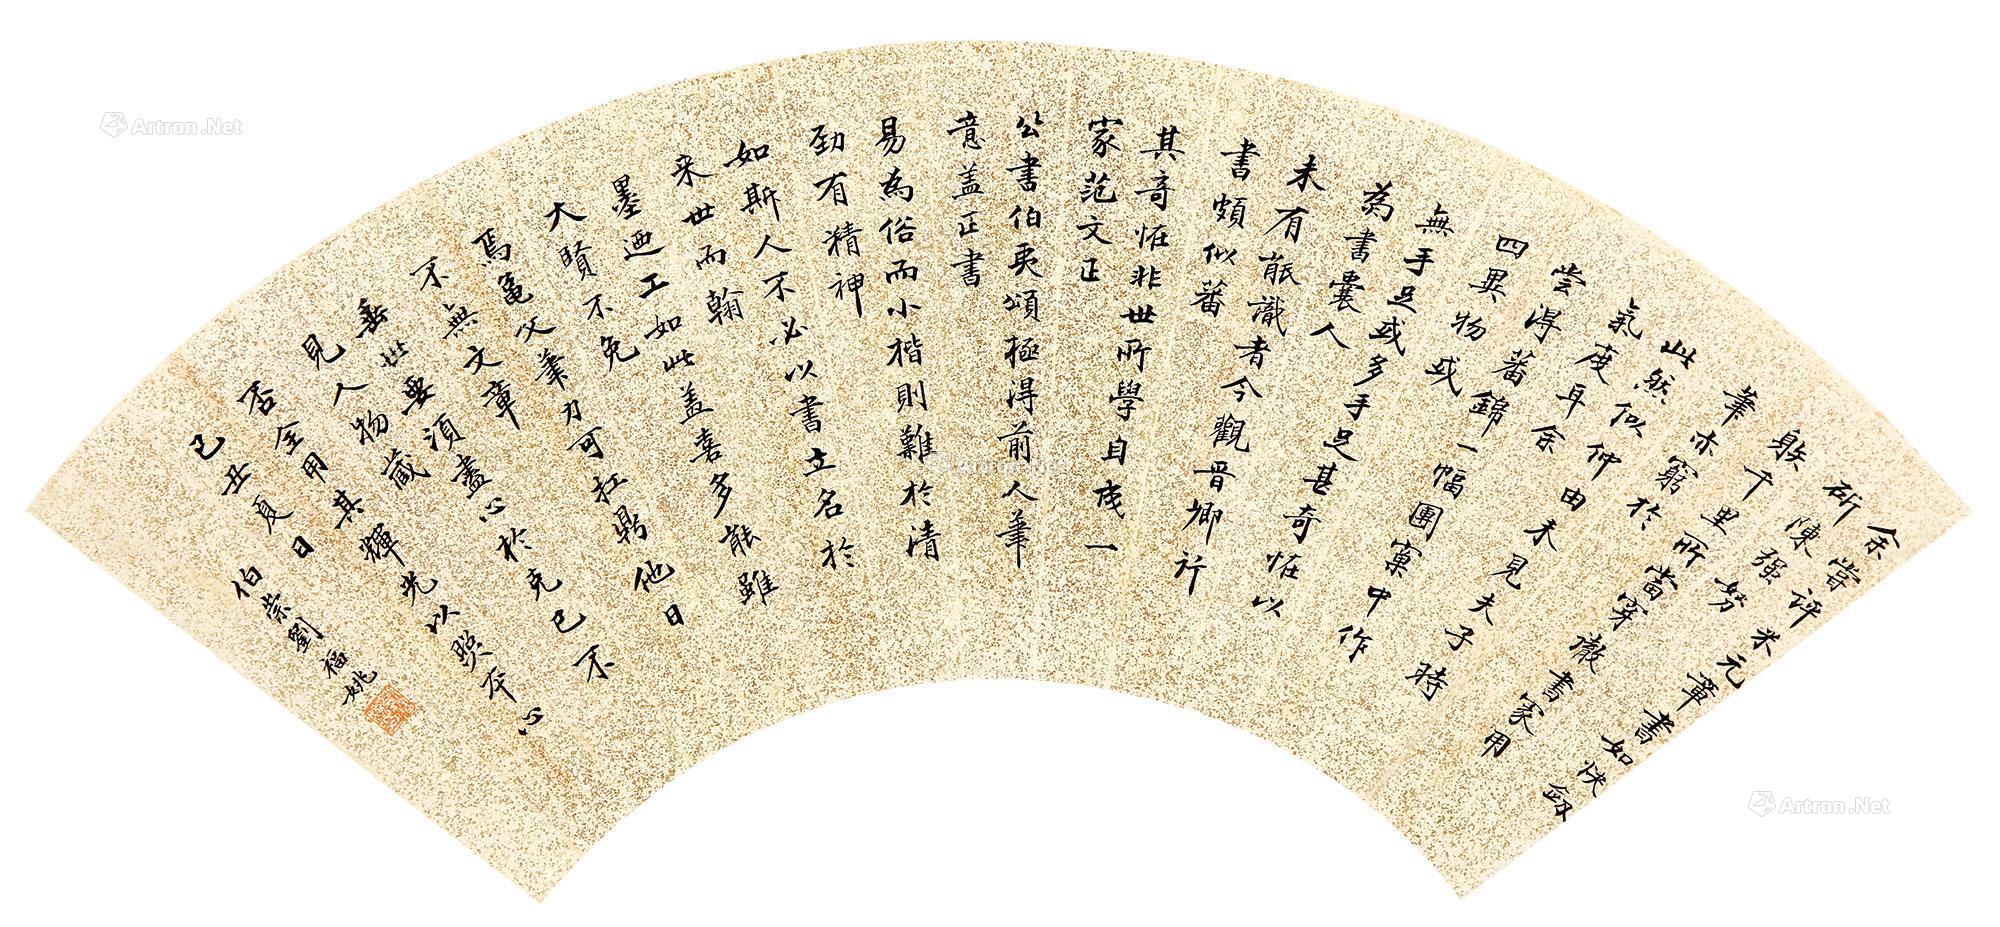 余嘗評米元章書如快劔
斫陳强努
躲千里所當穿徹書家用
筆亦窮於
此然似仲由未見夫子時
氣度耳余
嘗得蕃錦一幅團窠中作
四異物或
無手足或多手足甚奇恠以
為書囊人
未有能識者今觀晋卿行
書頗似蕃
其奇恠非世所學自成一
家范文正
公書伯夷頌極得前人筆
意盖正書
易為俗而小楷則難於清
勁有精神
如斯人不必以書立名於
来世而翰
墨迺工如此盖喜多能雖
大賢不免
焉黽父筆力可扛鼎他日
不無文章
垂世要須盡心於克己不
見人物臧
否全用其輝光以照本心
己丑夏日
伯崇劉福姚
Artron.Net
Artron.Net
Artron.Net